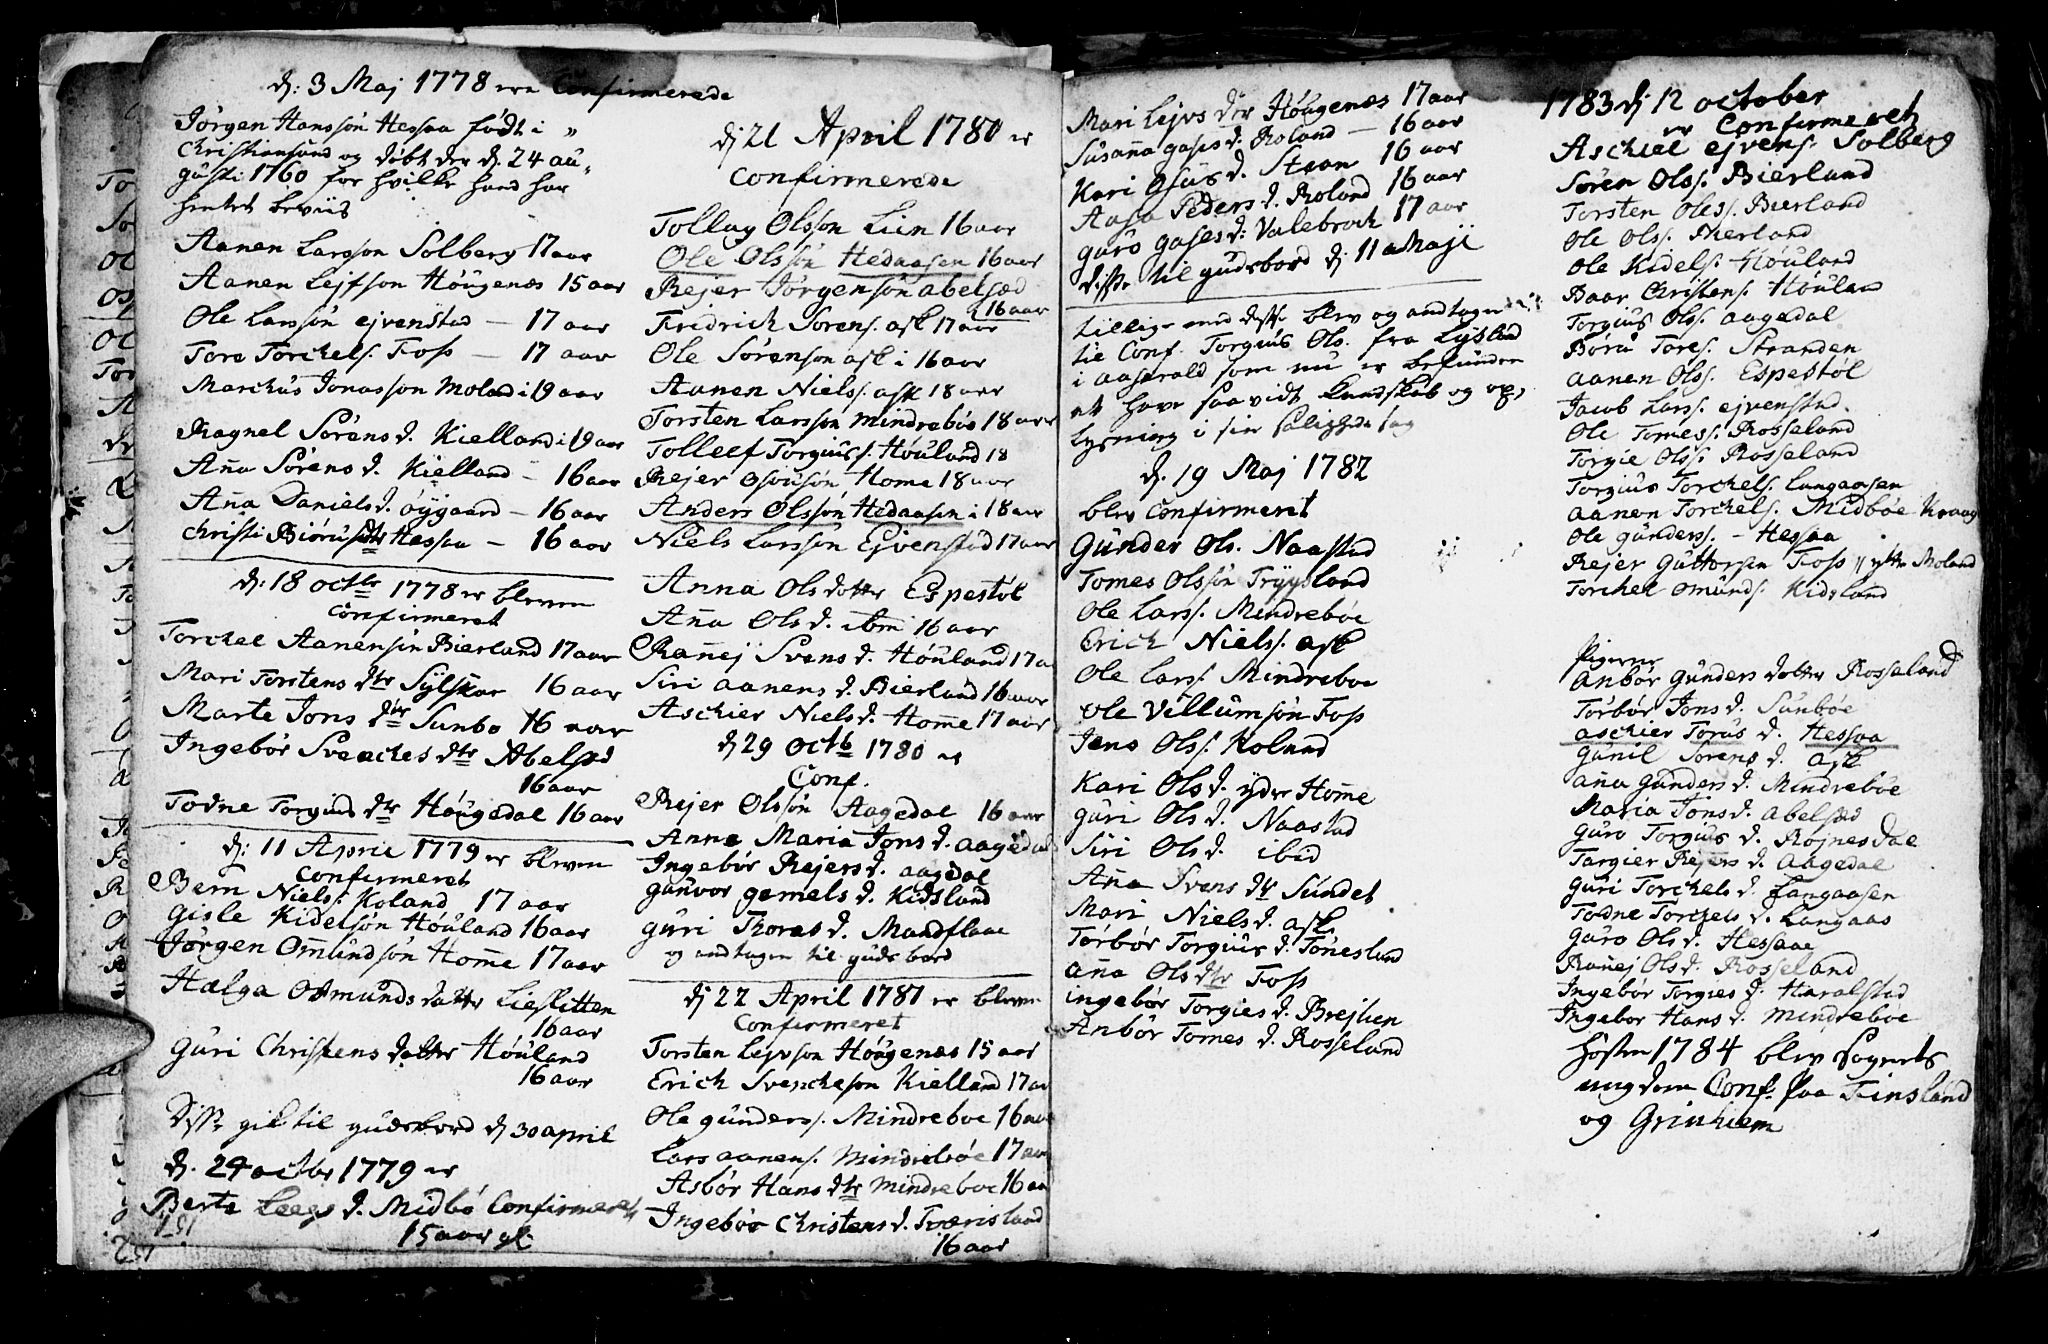 d: 3 Maj 1778 ere Confirmerede
Jørgen Hanssøn Hessaa født i
Christiansund og døbt der d. 24 au-
gusti 1760 for hvilke hand har
hentet beviis
Aanen Larsson Solberg 17 aar
Aanen Lejfson Høugenæs 15 aar
Ole Larssøn ejvenstad — 17 aar
Tore Torchels. Foss — 17 aar
Marchus Jonasson Moland i 19 aar
Ragnel Sørens d. Kielland i 19 aar
Aña Sørens d. Kielland — 16 aar
Aña Daniels d. øygaard — 16 aar
Christi Biørus dtr Hessaa — 16 aar
d: 18 octbr 1778 er bleven
Confirmeret
Torchel Aanensøn Bierland 17 aar
Mari Torstens dtr Sylskar 16 aar
Marte Jons dtr Sunbø 16 aar
Ingebør Sveaches dtr Abelsæd
16 aar
Todne Torgius dtr Høugedal 16 aar
d: 11 April 1779 er bleven
Confirmeret
Bern Niels. Holand 17 aar
Gisle Kidelsøn Høuland 16 aar
Jørgen Omundsøn Home 17 aar
Hælga Osmunds datter Lieslitten
16 aar
Guri Christens datter Høuland
16 aar
Disse gik til gudsbord d 30 april
d. 24 octbr 1779 er
Berte d. Midbø Confirmeret
15 aar gl.
dj 21 April 1780 er
Confirmerede
Tollag Olsson Lien 16 aar
Ole Olssøn Hedaasen 16 aar
Rejer Jørgensøn abelsæd
16 aar
Fridrich Sorens. ask 17 aar
Ole Sørenson ask i 16 aar
Aanen Niels. ask 18 aar
Torsten Larsson Mindrebøe 18 aar
Tolleef Torgius s. Høuland 18
Rejer Osousøn Home 18 aar
Anders Olssøn Hedaasen i 18 aar
Niels Larssøn Ejvenstad 17 aar
Anna Ols datter Espestøl
Aña Ols d. ibm 16 aar
Rañej Svens d. Høuland 17 a
Siri aanens d. Bierland 16 aar
Aschier Niels d. Home 17 aar
dj 29 Octb 1780 er
Conf.
Rejer Olssøn Aagedal 16 aar
Anne Maria Jons d. aagedal
Ingebør Rejers d. aagdal
gunvor gemels d. Kidsland
guri Thoras d. Mandflaae
og andtagen til guds bord
dj 22 April 1781 er bleven
Confirmeret
Torsten Lejvson Høugenæs 15 aar
Erich Svencheson Kielland 17 aar
Ole gunders. Mindreboe 16 aar
Lars aanens. Mindrebøe 17 aar
Asbør Hans dtr Mindreboe 16 aa
Ingebør Christens d. Tverisland
16 aar
Mari Lejvs dtr Høugenæs 17 aar
Susaña gases d: Roland — 16 aar
Kari Osus d. Steen 16 aar
Aasa Peders d. Roland 16 aar
guro gases d: Valebroch 17 aar
Disse til gudsbord dj 11 Maji
tillige med disse blev og andtagen
til Conf. Torgius Ols. fra Lysland
i aaserald som nu er befunden
at have saavidt kundskab og op-
lysning i sin saligheds sag
d. 19 Maj 1782
blev Confirmeret
Gunder Ols. Naastad
Tomes Olssøn Trygsland
Ole Lars s. Mindrebøe
Erich Niels s. ask
Ole Lars s. Mindreboe
Ole Villumsøn Foss
Jens Ols s. Holand
Kari Ols d. yder Home
guri Ols d. Naastad
Siri Ols d. ibid
Aña Svens dtr Sundet
Mari Niels d. ask
Torbør Torgius d. Tønesland
aña Ols dtr Foss
ingebør Torgies d. Brejlien
Anbør Tomes d. Rosseland
1783 dj 12 october
er Confirmeret
Aschiel ejvens. Solberg
Søren Olss. Bierland
Torsten Oless. Bierland
Ole Olss. Bierland
Ole Kidels. Høuland
Baar Christens. Høuland
Torgius Olss. aagedal
Børu Tores. Stranden
aanen Olss. Espestøl
Jacob Larss. ejvenstad.
Ole Tomess. Rosseland
Torgie Olss. Rosseland
Torgius Torchels. Langaasen
aanen Torchels. Midbøe Kraag
Ole gunders s. — Hessaa
Rejer Guttorsen Foss // ytre Moland
Torchel omunds. Kidsland
Pigerne
Anbør Gunders datter Rosseland
Torbør Jons d. Sunbøe
aschier Torus d. Hessaa
Gunil Sorens d. ask
aña Gunders d. Mindrebøe
Maria Jons d. abelsæd
guro Torgius d. Røjnesdal
Targier Rejers d. aagedal
Guri Torchels d. Langaasen
Todne Torchels d. Langaas
Guro Ols d. Hessaae
Rañej Ols d. Rosseland
Ingebør Torgies d. Haralstad
Ingebor Hans d. Mindreboe
Høsten 1784 blev Sognets
ungdom Conf. paa Finsland
og Grinhiem